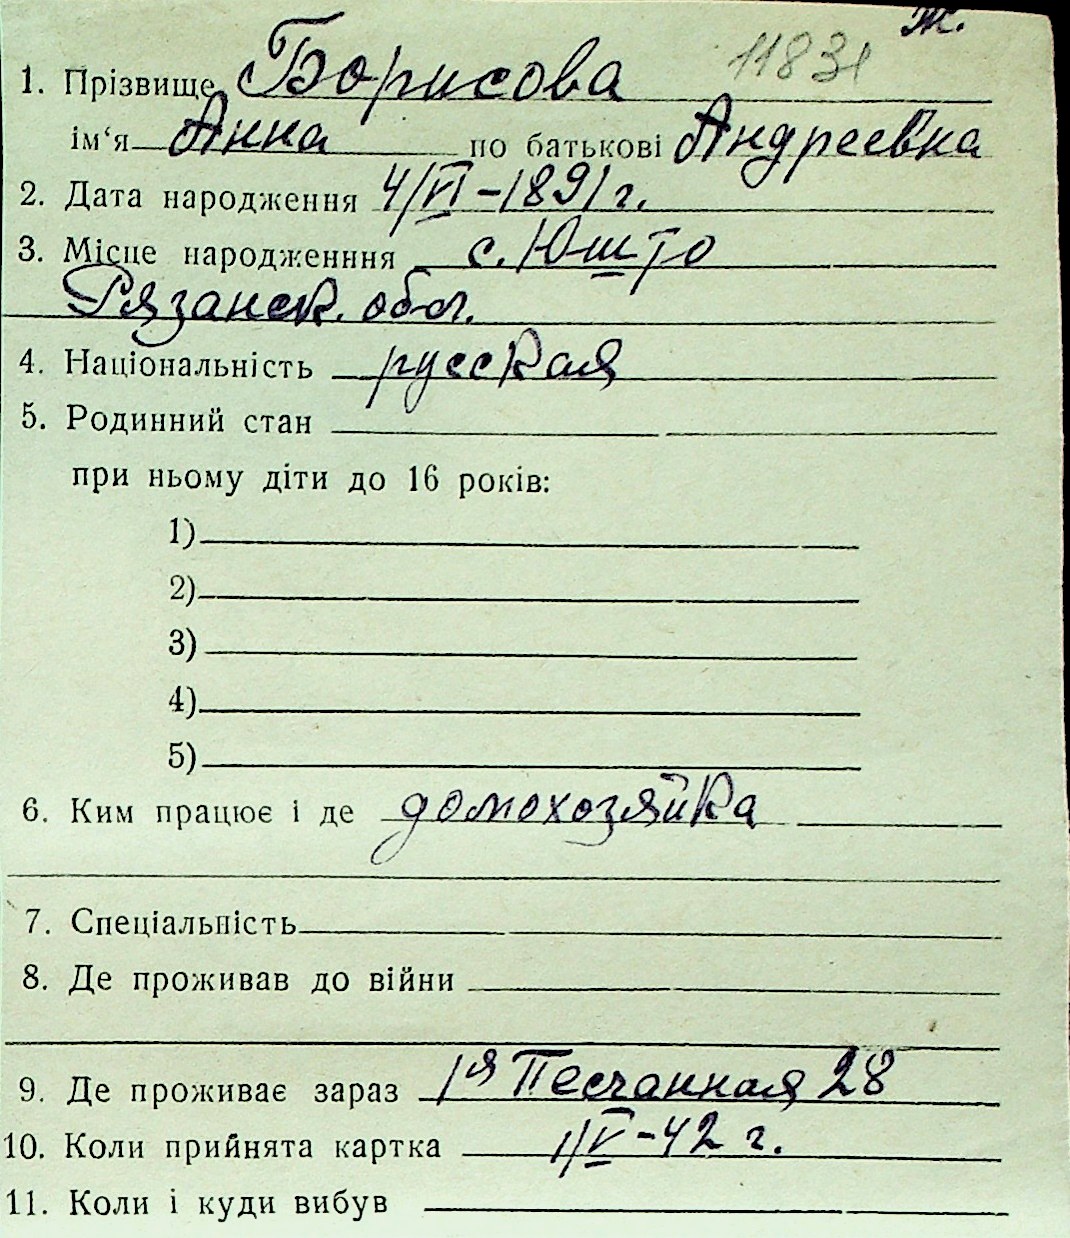 Ж.
11831
1. Прізвище Борисова
ім‘я Анна по батькові Андреевна
2. Дата народження 4/VI-1891 г.
3. Місце народженння с. Юшто
Рязанск. обл.
4. Національність русская
5. Родинний стан
при ньому діти до 16 років:
1)
2)
3)
4)
5)
6. Ким працює і де домохозяйка
7. Спеціальність
8. Де проживав до війни
9. Де проживає зараз 1я Песчанная 28
10. Коли прийнята картка 1/V-42 г.
11. Коли і куди вибув